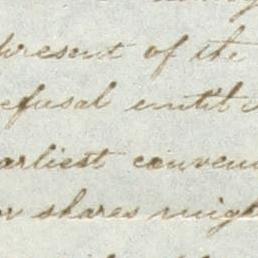 present of the
refusal until
earliest conven
or shares migh